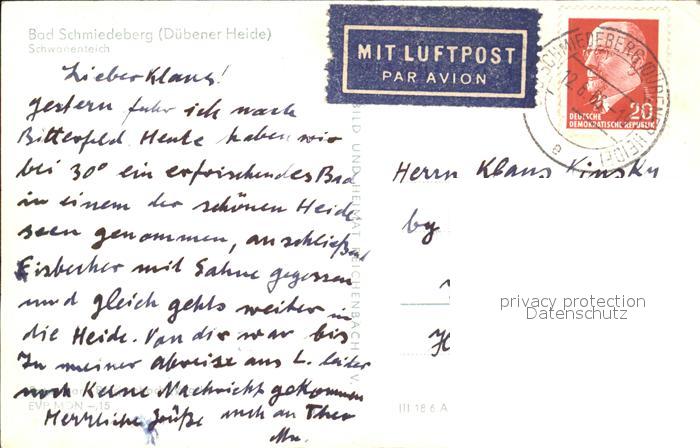 Bad Schmiedeberg (Dübener Heide)
Schwanenteich
Lieber Klaus!
gestern fuhr ich nach
Bitterfeld. Heute haben wir
bei 30° ein erfrischendes Bad
in einem der schönen Heide
seen genommen, anschließend
Eisbecher mit Sahne gegessen
und gleich gehts weiter in
die Heide. Von dir war bis
zu meiner Abreise aus L. leider
noch keine Nachricht gekommen
Herrliche Grüße auch an Theo
EVP MDN -,15
BILD UND HEIMAT REICHENBACH V.
III 18 6 A
MIT LUFTPOST
PAR AVION
SCHMIEDEBERG (DÜBENER HEIDE)
e
20
DEUTSCHE
DEMOKRATISCHE REPUBLIK
Herrn Klaus Kinsky
by
H
privacy protection
Datenschutz